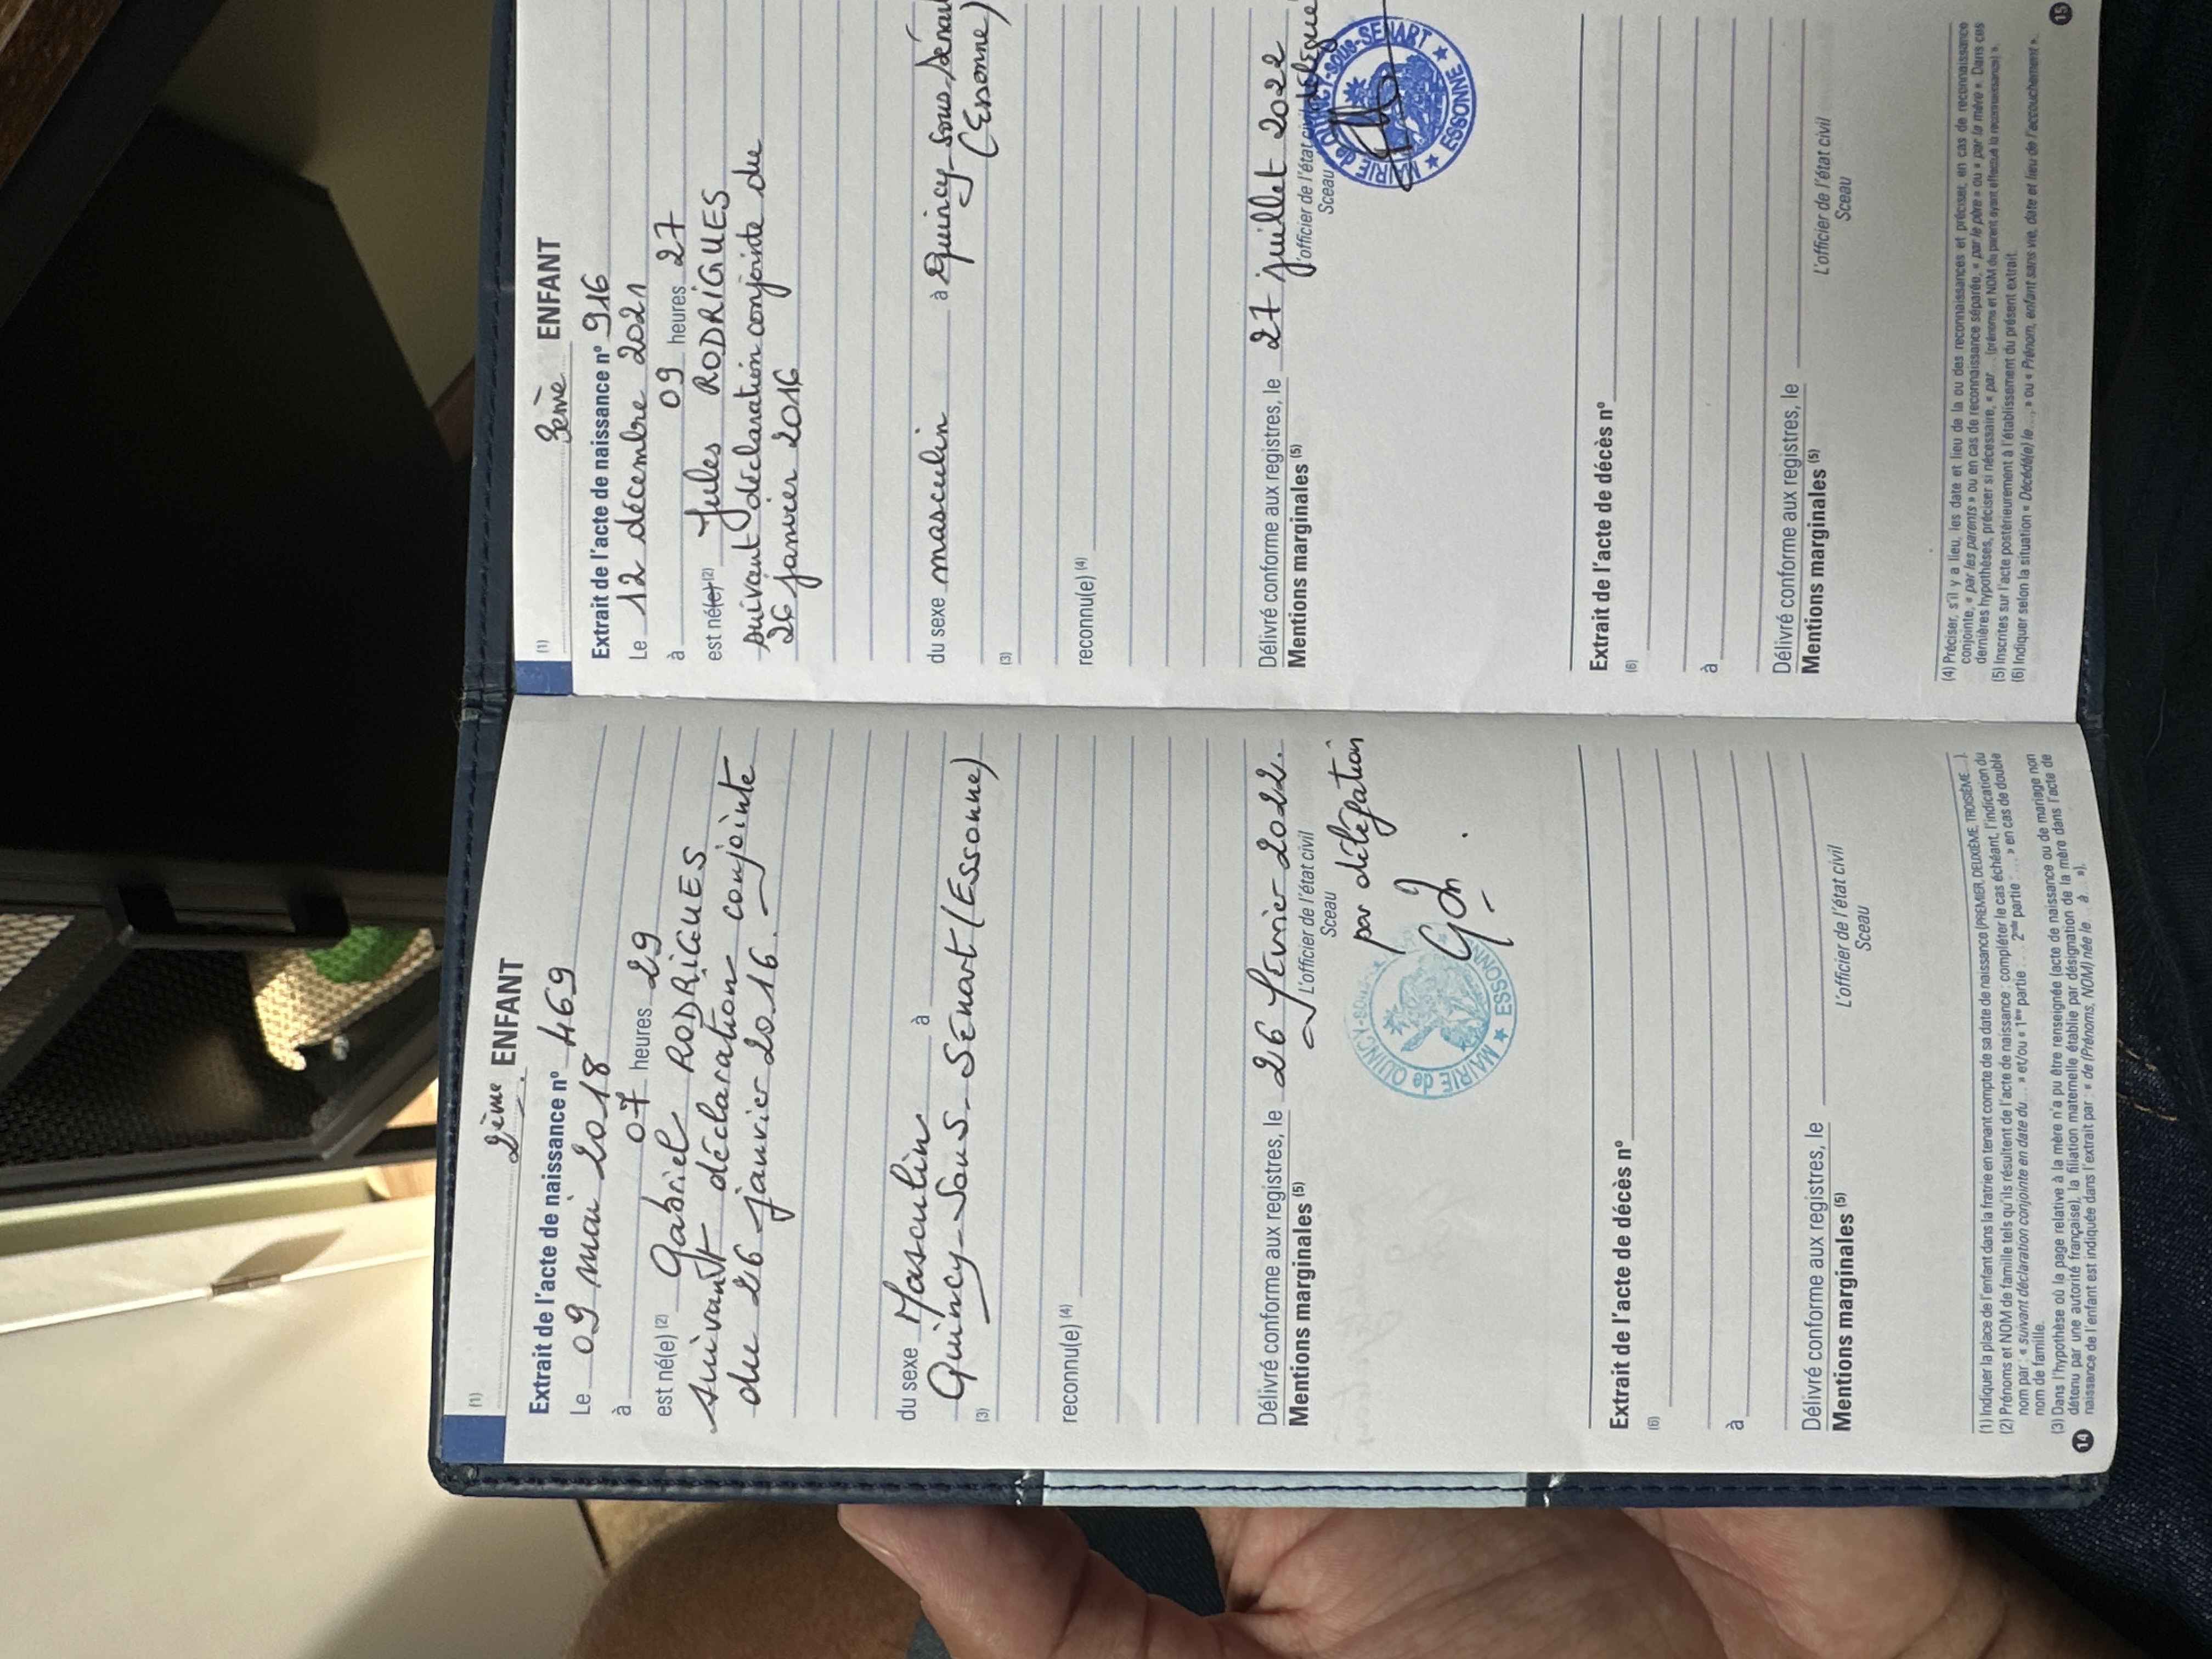 (1) 2ème ENFANT
Extrait de l'acte de naissance nº 469
Le 09 mai 2018
à 07 heures 29
est né(e) (2) Gabriel RODRIGUES
suivant déclaration conjointe
du 26 janvier 2016.
du sexe Masculin à
Quincy-Sous-Sénart (Essonne)
(3)
reconnu(e) (4)
Délivré conforme aux registres, le 26 Février 2022.
Mentions marginales (5)
L'officier de l'état civil
Sceau
par délégation
MAIRIE de QUINCY-SOUS- ★ ESSONNE
Extrait de l'acte de décès nº
(6)
à
Délivré conforme aux registres, le
Mentions marginales (5)
L'officier de l'état civil
Sceau
(1) Indiquer la place de l'enfant dans la fratrie en tenant compte de sa date de naissance (PREMIER, DEUXIÈME, TROISIÈME...).
(2) Prénoms et NOM de famille tels qu'ils résultent de l'acte de naissance : compléter le cas échéant, l'indication du
nom par : « suivant déclaration conjointe en date du... » et/ou « 1ère partie : ... 2nde partie : ... » en cas de double
nom de famille.
(3) Dans l'hypothèse où la page relative à la mère n'a pu être renseignée (acte de naissance ou de mariage non
détenu par une autorité française), la filiation maternelle établie par désignation de la mère dans l'acte de
naissance de l'enfant est indiquée dans l'extrait par : « de (Prénoms, NOM) née le ... à ... »).
14
(1) 3ème ENFANT
Extrait de l'acte de naissance nº 916
Le 12 décembre 2021
à 09 heures 27
est né(e) (2) Jules RODRIGUES
suivant déclaration conjointe du
26 janvier 2016
du sexe masculin à Quincy-sous-Sénart
(3) (Essonne)
reconnu(e) (4)
Délivré conforme aux registres, le 27 juillet 2022
Mentions marginales (5)
L'officier de l'état civil délégué
Sceau
MAIRIE de QUINCY-sous-SENART ★ ESSONNE ★
Extrait de l'acte de décès nº
(6)
à
Délivré conforme aux registres, le
Mentions marginales (5)
L'officier de l'état civil
Sceau
(4) Préciser, s'il y a lieu, les date et lieu de la ou des reconnaissances et préciser, en cas de reconnaissance
conjointe, « par les parents » ou en cas de reconnaissance séparée, « par le père » ou « par la mère ». Dans ces
dernières hypothèses, préciser si nécessaire, « par ... (prénoms et NOM du parent ayant effectué la reconnaissance) ».
(5) Inscrites sur l'acte postérieurement à l'établissement du présent extrait.
(6) Indiquer selon la situation « Décédé(e) le... » ou « Prénom, enfant sans vie, date et lieu de l'accouchement ».
15